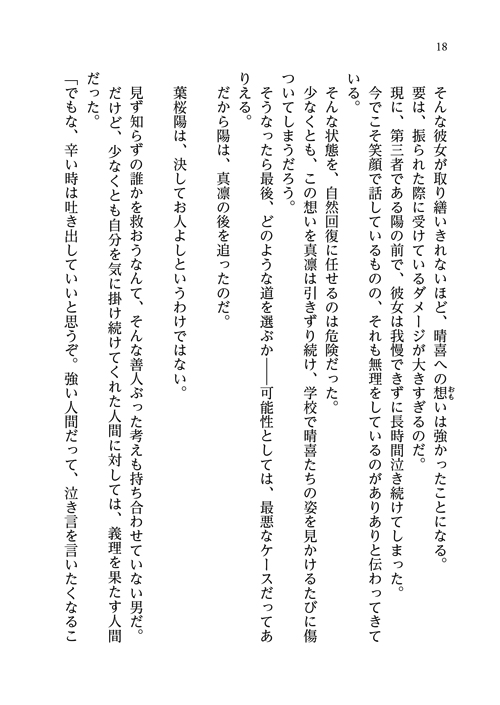 18
そんな彼女が取り繕いきれないほど、晴喜への想いは強かったことになる。
おも
要は、振られた際に受けているダメージが大きすぎるのだ。
現に、第三者である陽の前で、彼女は我慢できずに長時間泣き続けてしまった。
今でこそ笑顔で話しているものの、それも無理をしているのがありありと伝わってきて
いる。
そんな状態を、自然回復に任せるのは危険だった。
少なくとも、この想いを真凛は引きずり続け、学校で晴喜たちの姿を見かけるたびに傷
ついてしまうだろう。
そうなったら最後、どのような道を選ぶか――可能性としては、最悪なケースだってあ
りえる。
だから陽は、真凛の後を追ったのだ。
葉桜陽は、決してお人よしというわけではない。
見ず知らずの誰かを救おうなんて、そんな善人ぶった考えも持ち合わせていない男だ。
だけど、少なくとも自分を気に掛け続けてくれた人間に対しては、義理を果たす人間
だった。
「でもな、辛い時は吐き出していいと思うぞ。強い人間だって、泣き言を言いたくなるこ